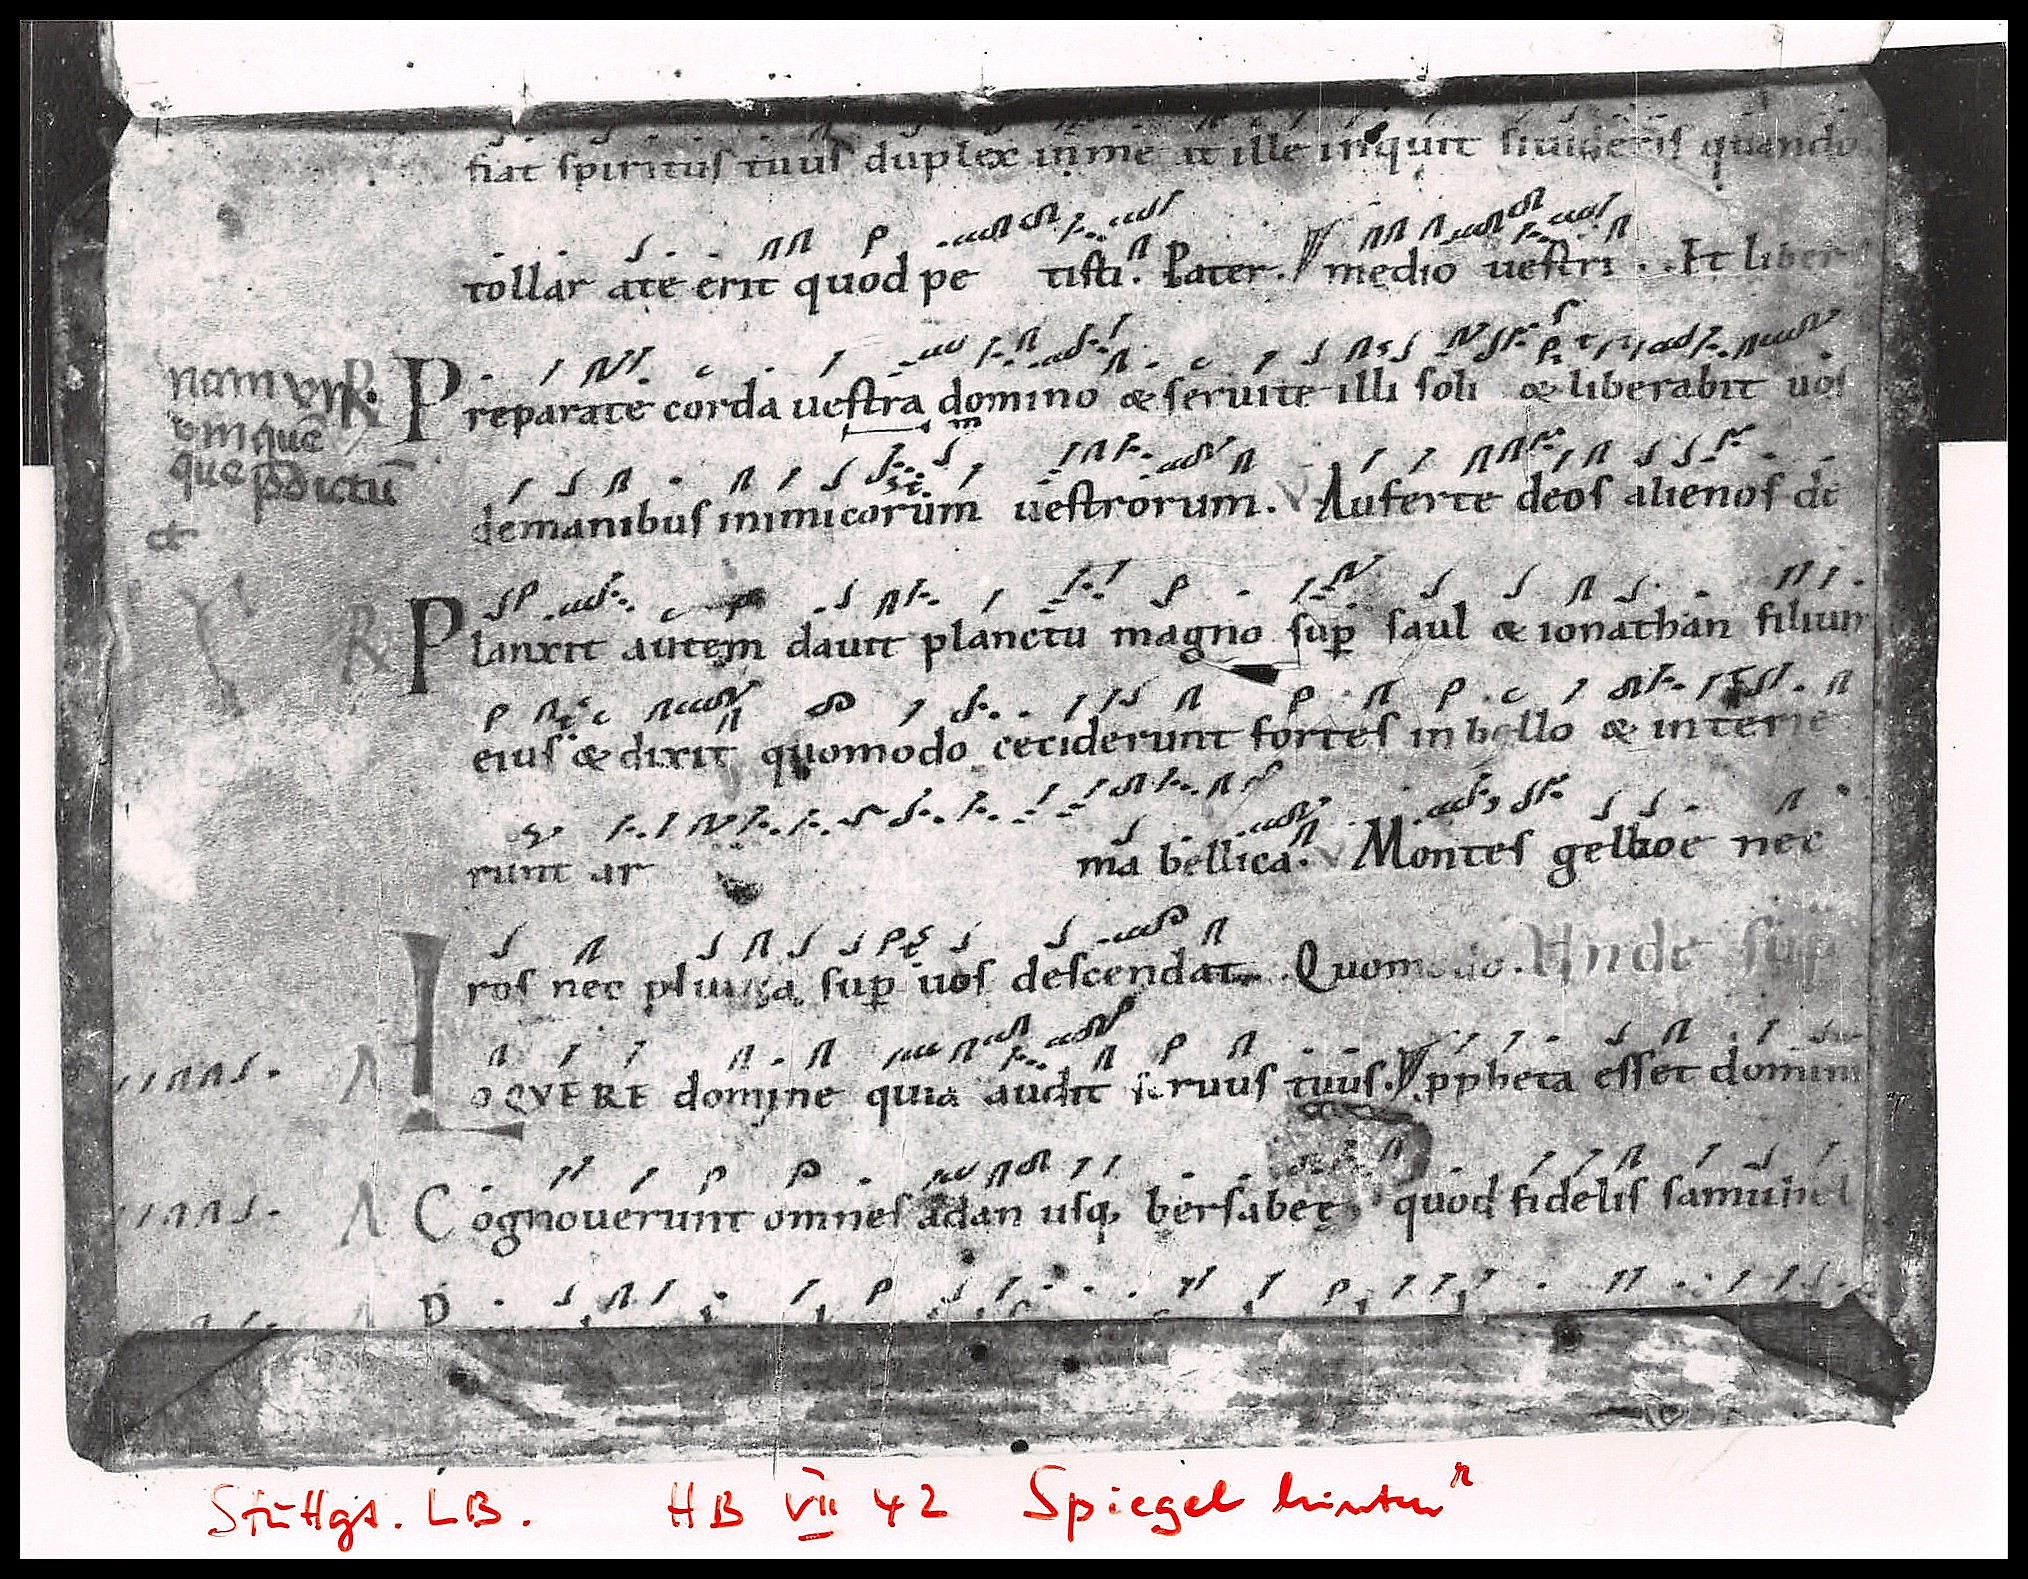 fiat spiritus tuus duplex in me et ille inquit si uideris quando
tollar a te erit quod pe tisti. Pater. V medio uestri. Et liber
R Preparate corda uestra domino & seruite illi soli & liberabit uos
que pdictū
et
de manibus inimicorum uestrorum. V Auferte deos alienos de
R Planxit autem dauit planctu magno sup saul & ionathan filium
eius & dixit quomodo ceciderunt fortes in bello & interie
runt ar ma bellica. V Montes gelboe nec
ros nec pluuia sup uos descendat. Quomodo. Unde sup
LOQVERE domine quia audit seruus tuus. V ppheta esset domini
Cognouerunt omnes a dan usq bersabeę quod fidelis samuhel
P
Stuttgt. LB. HB VII 42 Spiegel hinten r